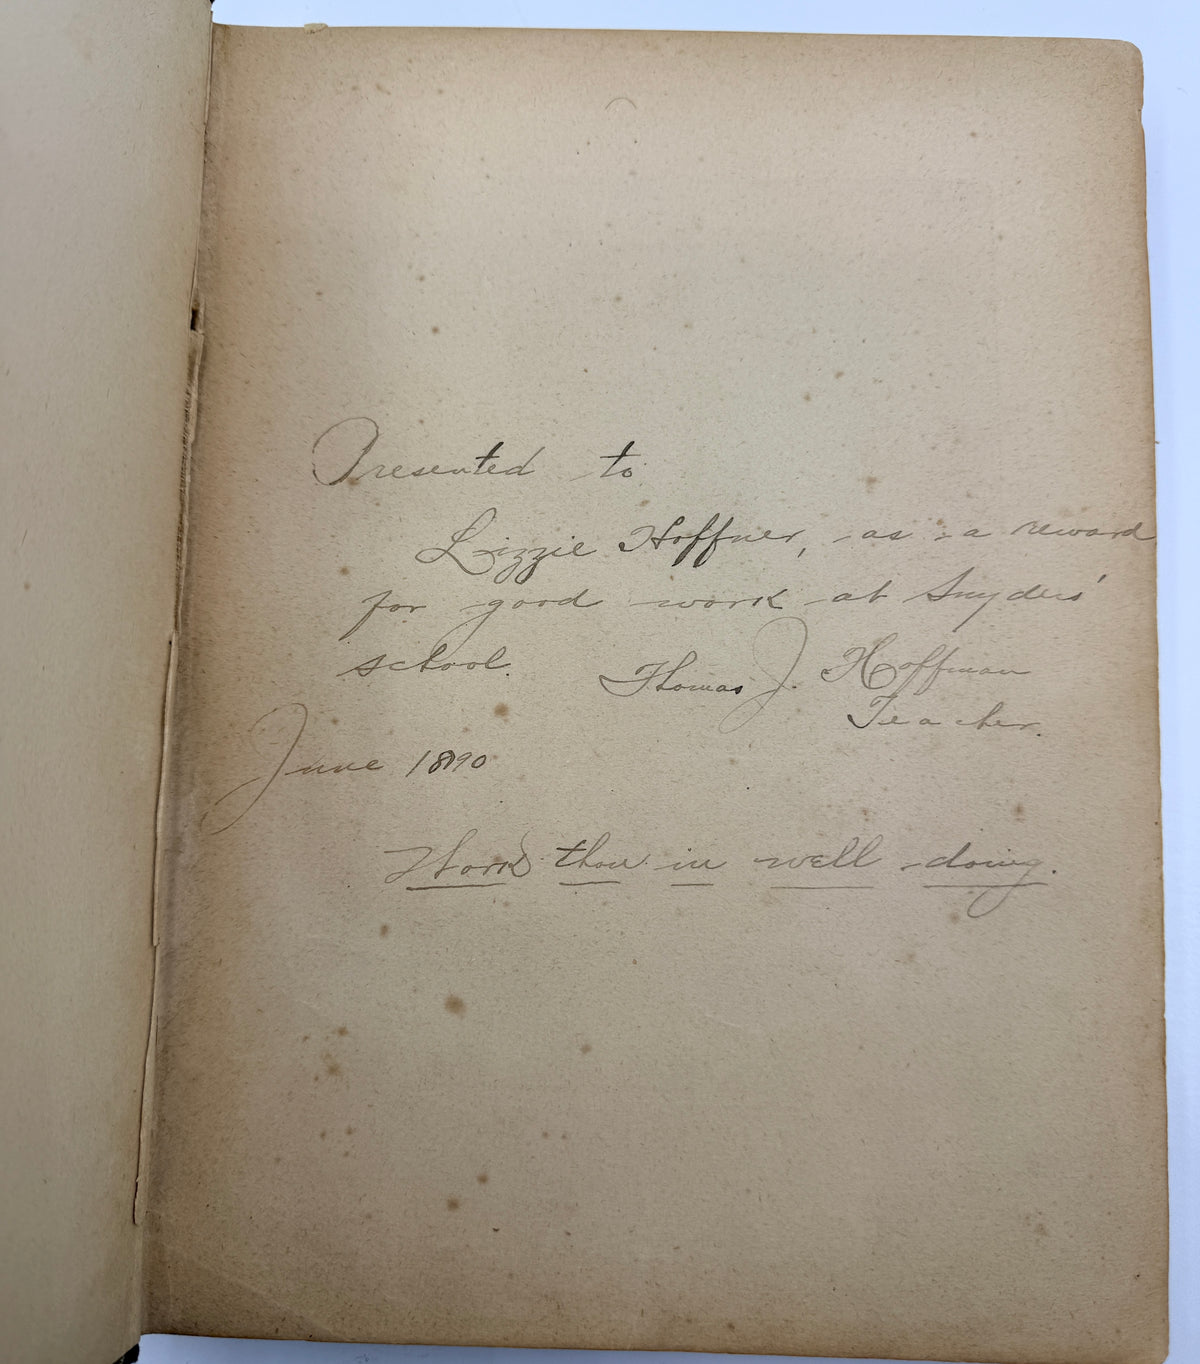 Presented to
Lizzie Hoffner, as a reward
for good work at Snyders'
school.
Thomas J. Hoffman
Teacher.
June 1890
Work thou in well doing.